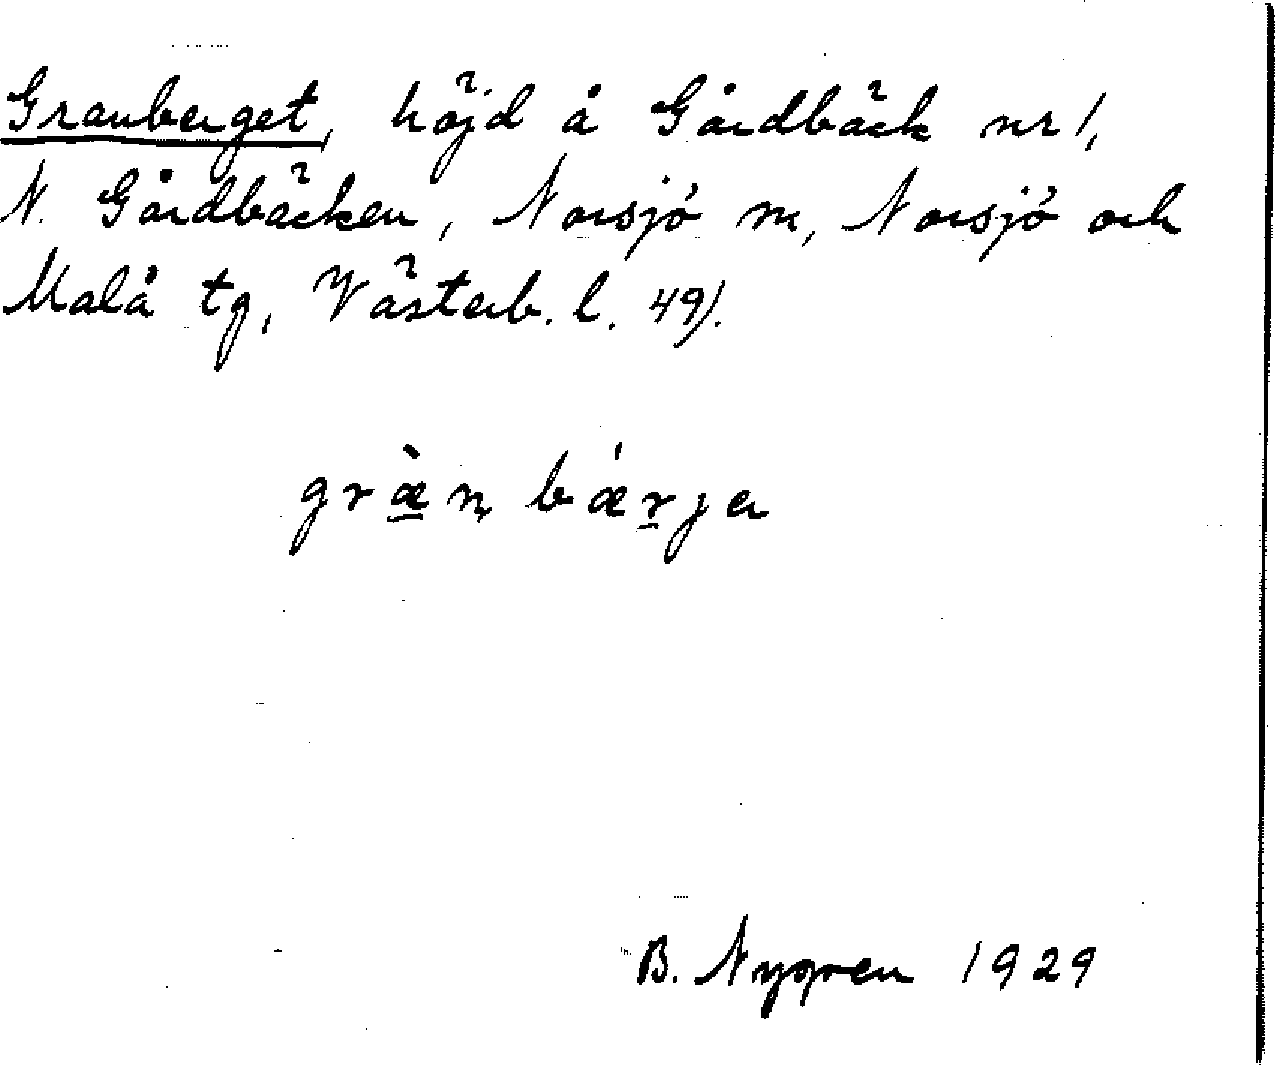 Granberget, höjd å Gårdbäck nr 1,
N. Gårdbäcken, Norsjö m, Norsjö och
Malå tg, Västerb. l. 49).
græ̀n bǽrjen
B. Nygren 1929